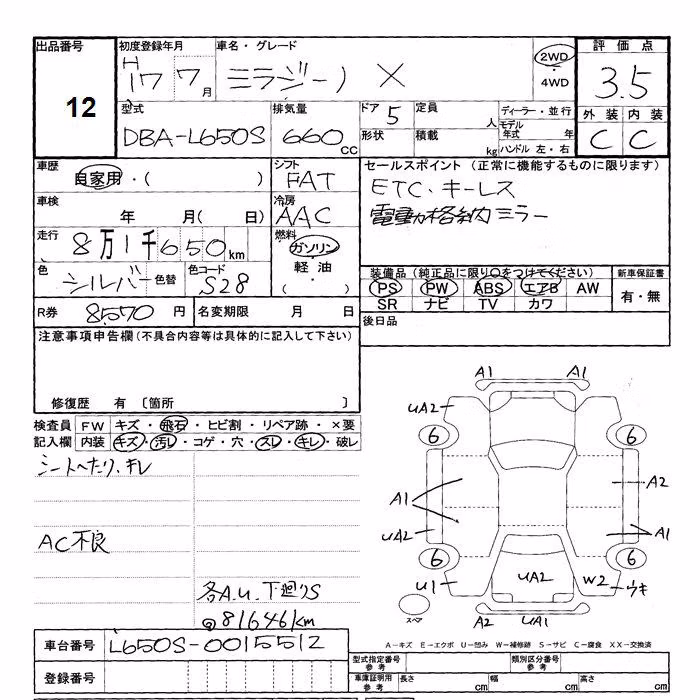 出品番号 初度登録年月 車名・グレード 評価点
12 H 17 7月 ミラジーノ X 2WD・4WD 3.5
型式 排気量 ドア 定員 ディーラー・並行 外装 内装
DBA-L650S 660cc 5 人 モデル年式 年 C C
形状 積載 kg ハンドル 左・右
車歴 シフト セールスポイント (正常に機能するものに限ります)
自家用・( ) FAT ETC、キーレス
車検 冷房 電動格納ミラー
年 月( 日) AAC
走行 燃料
8万1千650km ガソリン
色 色替 色コード 軽油
シルバー S28 ・( )
装備品 (純正品に限り○をつけてください) 新車保証書
PS PW ABS エアB AW 有・無
SR ナビ TV カワ
R券 8570円 名変期限 月 日 後日品
注意事項申告欄 (不具合内容等は具体的に記入して下さい)
修復歴 有 〔箇所 〕
検査員 FW キズ・飛石・ヒビ割・リペア跡・×要
記入欄 内装 キズ・汚レ・コゲ・穴・スレ・キレ・破レ
シートへたり、キレ
AC不良
各A.U.下廻りS
@81646km
A1 A1
UA2
6 6
A1 A2
UA2 A1
6 6
U1 UA2 W2 ウキ
スペア A2 UA1
A-キズ E-エクボ U-凹み W-補修跡 S-サビ C-腐食 XX-交換済
車台番号 L650S-0015512
登録番号
型式指定番号 参考 類別区分番号 参考
車庫証明用 参考 長さ cm 幅 cm 高さ cm